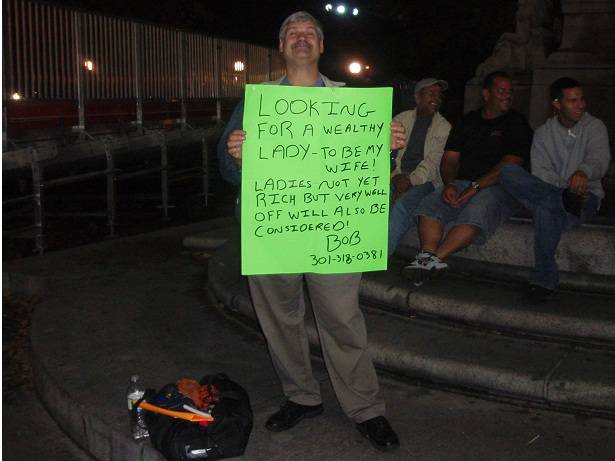 LOOKING
FOR A WEALTHY
LADY-TO BE MY
WIFE!
LADIES NOT YET
RICH BUT VERY WELL
OFF WILL ALSO BE
CONSIDERED!
BOB
301-318-0381